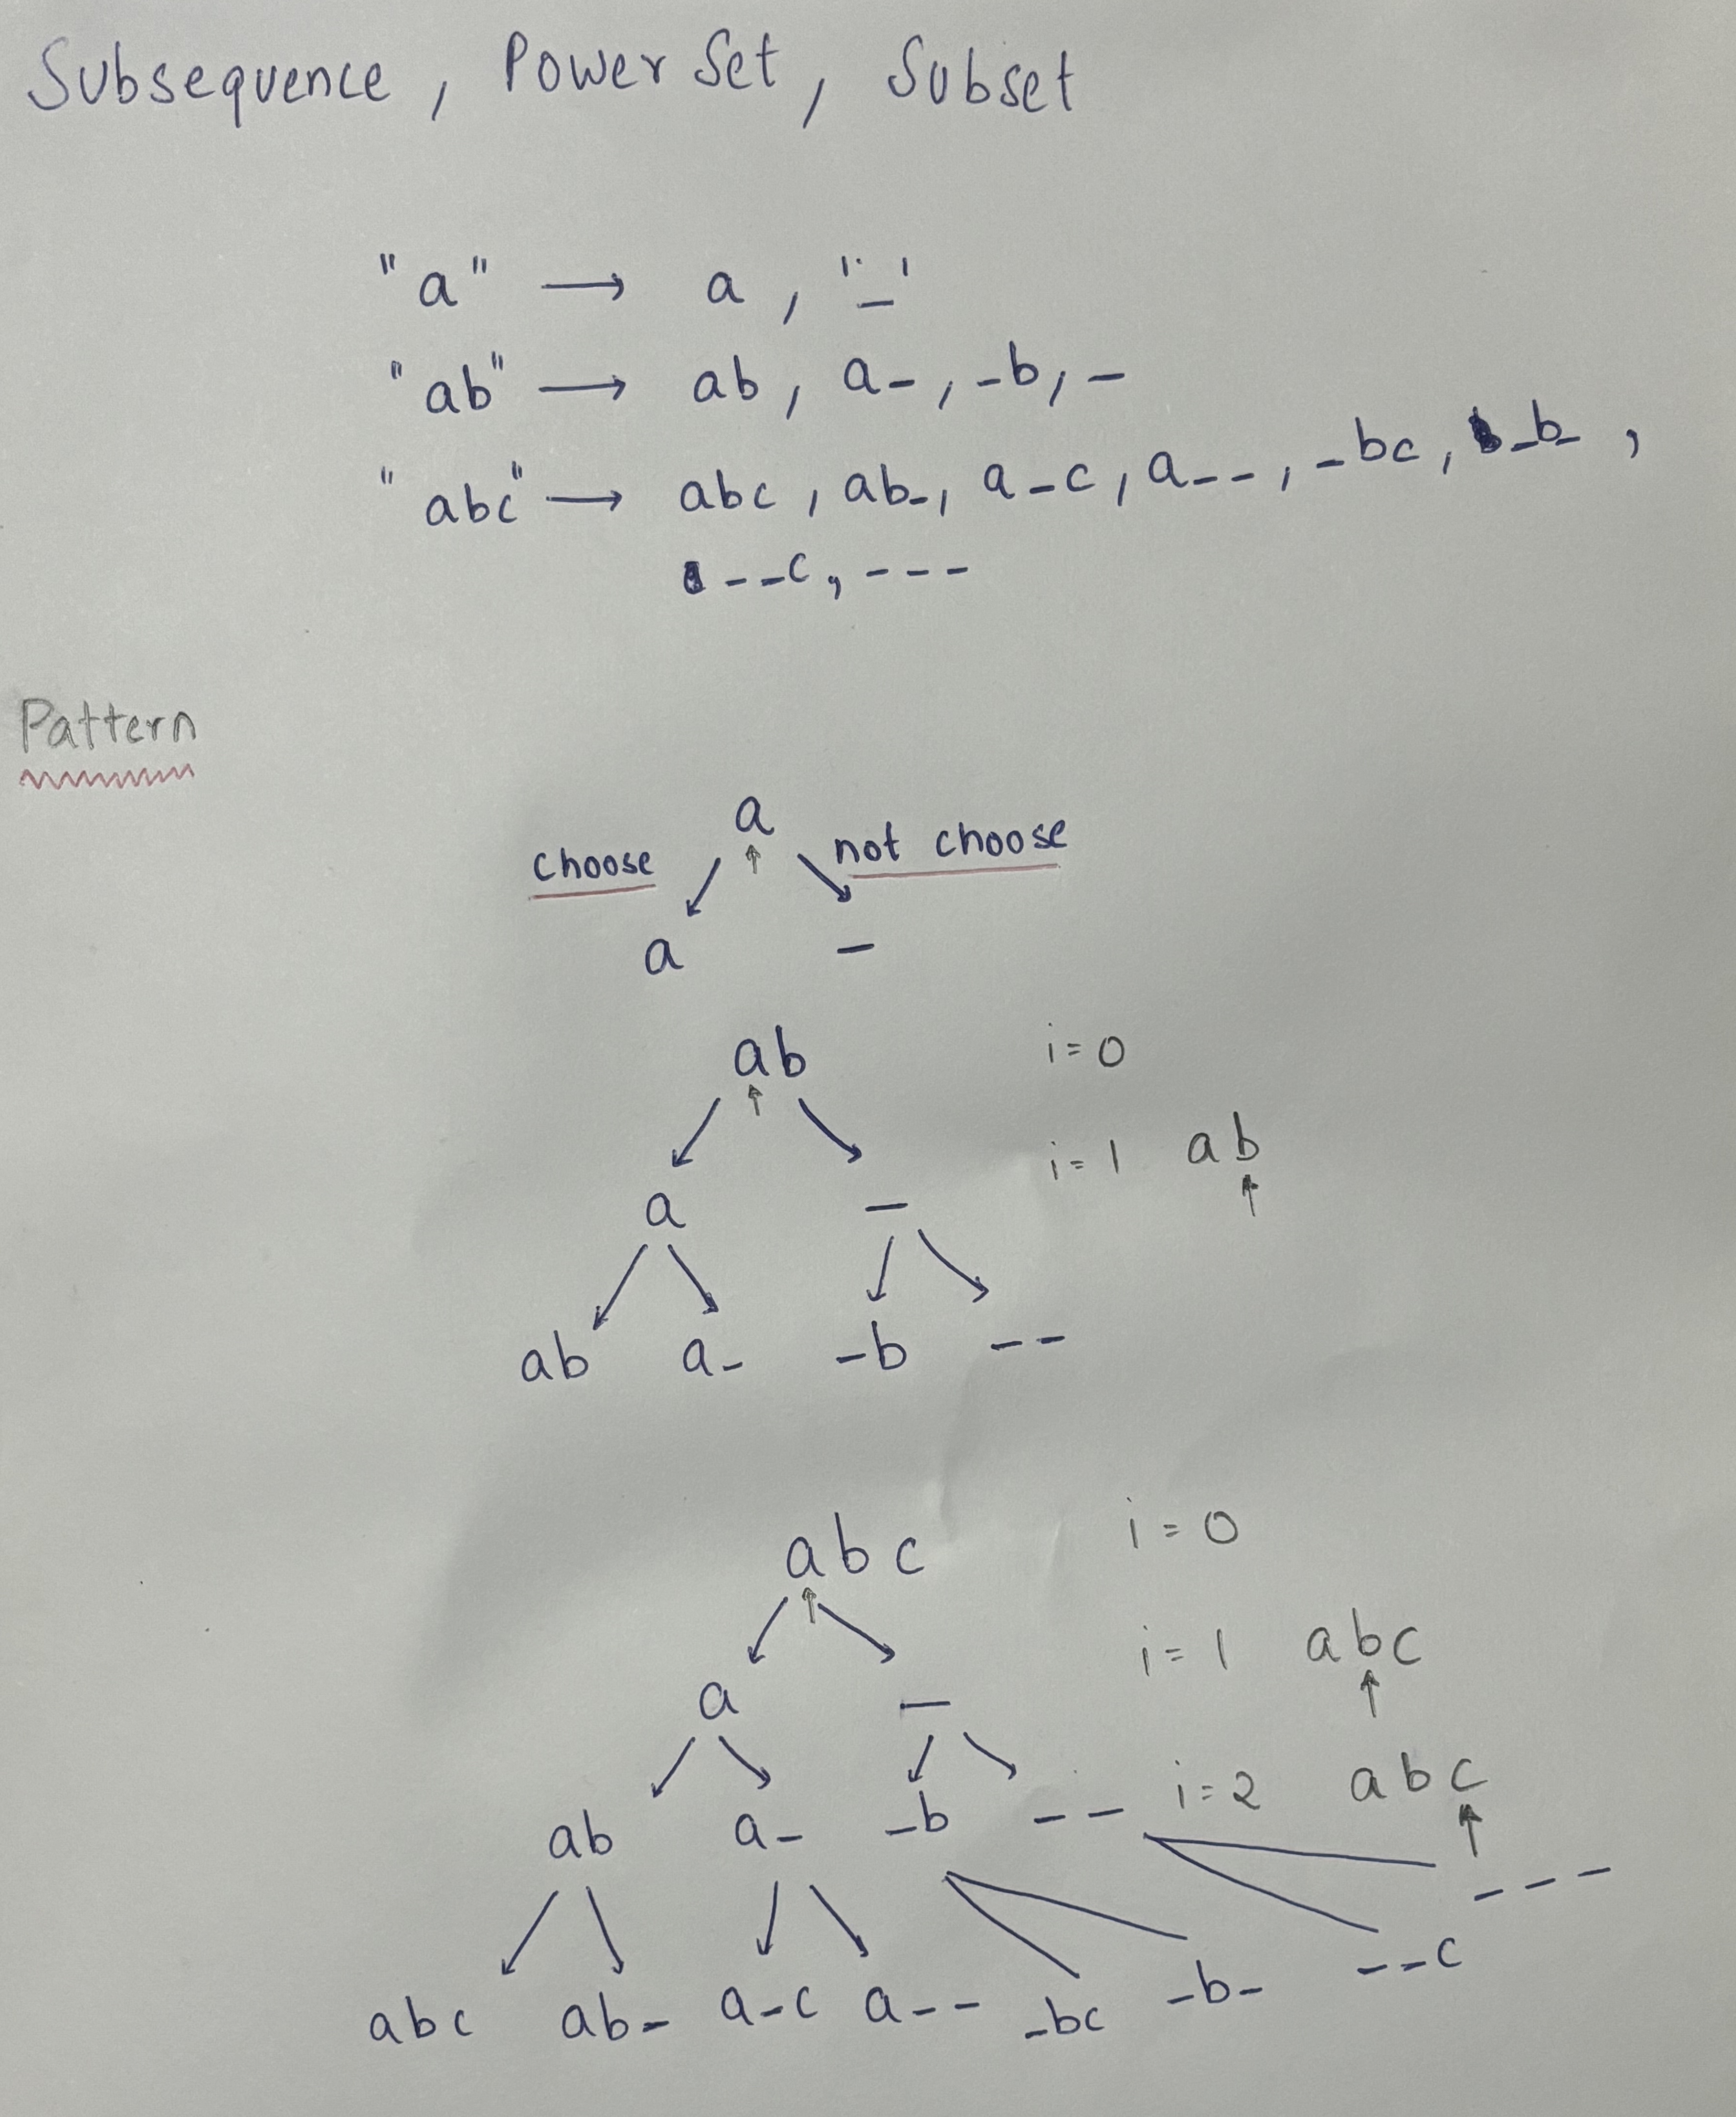 Subsequence, Power Set, Subset
"a" → a, '_'
"ab" → ab, a-, -b, -
"abc" → abc, ab-, a-c, a--, -bc, -b-,
--c, ---
Pattern
a
choose not choose
a -
ab i=0
i=1 ab
a -
ab a- -b --
abc i=0
i=1 abc
a -
ab a- -b -- i=2 abc
---
--c
abc ab- a-c a-- -bc -b-